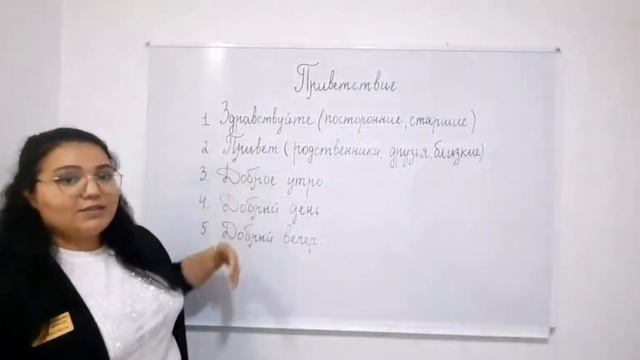 Приветствие
1 Здравствуйте (посторонние, старшие)
2 Привет (родственники, друзья, близкие)
3. Доброе утро.
4. Добрый день
5 Добрый вечер.